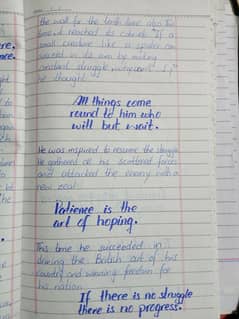 the wall for the tenth time also the
time it reached its cobweb. "If a
small creature like a spider can
succeed in its aim by making
constant struggle, why can't I,"
he thought.
All things come
round to him who
will but wait.
He was inspired to resume the struggle
He gathered all his scattered forces
and attacked the enemy with a
new zeal.
Patience is the
art of hoping.
This time he succeeded in
driving the British out of his
country and winning freedom for
his nation.
If there is no struggle
there is no progress.